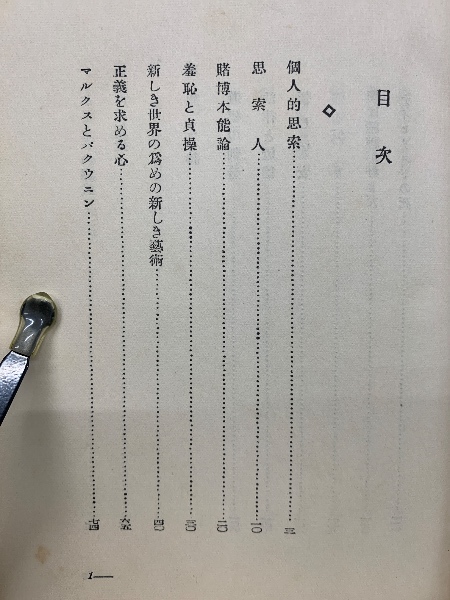 目次
◇
個人的思索……三
思索人……一〇
賭博本能論……二〇
羞恥と貞操……三〇
新しき世界の爲めの新しき藝術……四〇
正義を求める心……六五
マルクスとバクウニン……七四
1—